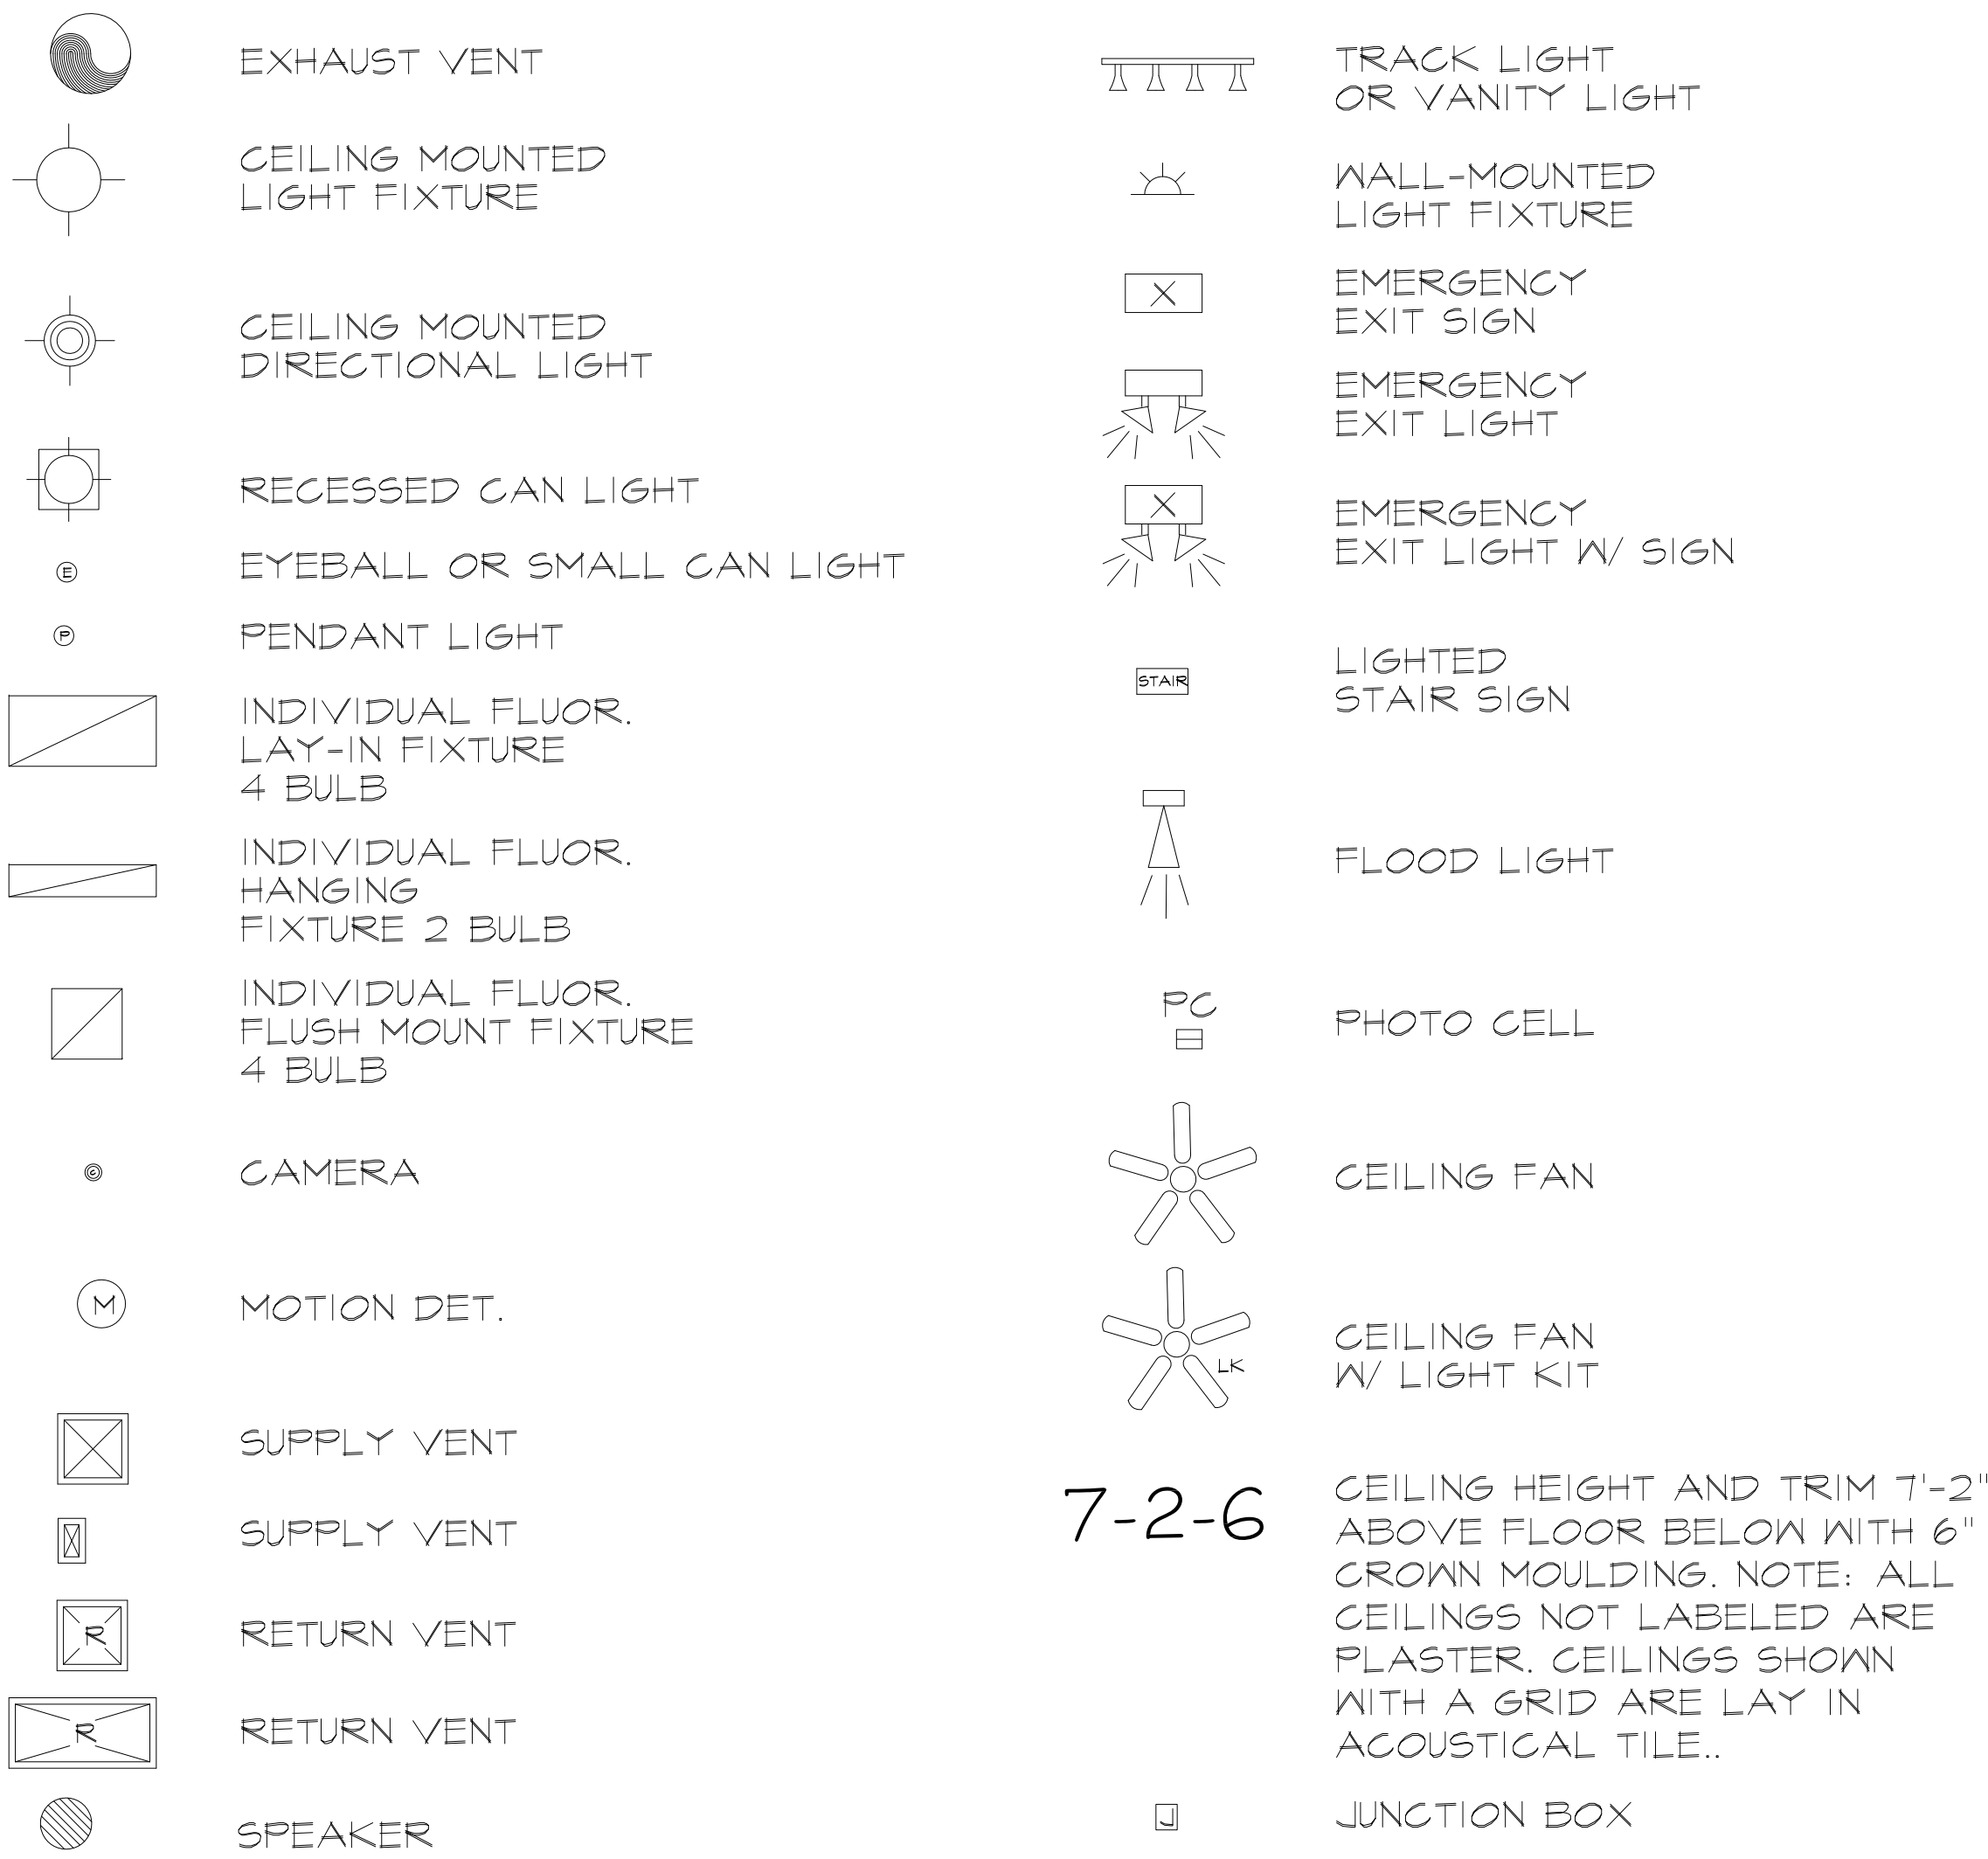 EXHAUST VENT
CEILING MOUNTED
LIGHT FIXTURE
CEILING MOUNTED
DIRECTIONAL LIGHT
RECESSED CAN LIGHT
E
EYEBALL OR SMALL CAN LIGHT
P
PENDANT LIGHT
INDIVIDUAL FLUOR.
LAY-IN FIXTURE
4 BULB
INDIVIDUAL FLUOR.
HANGING
FIXTURE 2 BULB
INDIVIDUAL FLUOR.
FLUSH MOUNT FIXTURE
4 BULB
C
CAMERA
M
MOTION DET.
SUPPLY VENT
SUPPLY VENT
R
RETURN VENT
R
RETURN VENT
SPEAKER
TRACK LIGHT
OR VANITY LIGHT
WALL-MOUNTED
LIGHT FIXTURE
X
EMERGENCY
EXIT SIGN
EMERGENCY
EXIT LIGHT
X
EMERGENCY
EXIT LIGHT W/ SIGN
STAIR
LIGHTED
STAIR SIGN
FLOOD LIGHT
PC
PHOTO CELL
CEILING FAN
LK
CEILING FAN
W/ LIGHT KIT
7-2-6
CEILING HEIGHT AND TRIM 7'-2"
ABOVE FLOOR BELOW WITH 6"
CROWN MOULDING. NOTE: ALL
CEILINGS NOT LABELED ARE
PLASTER. CEILINGS SHOWN
WITH A GRID ARE LAY IN
ACOUSTICAL TILE..
J
JUNCTION BOX